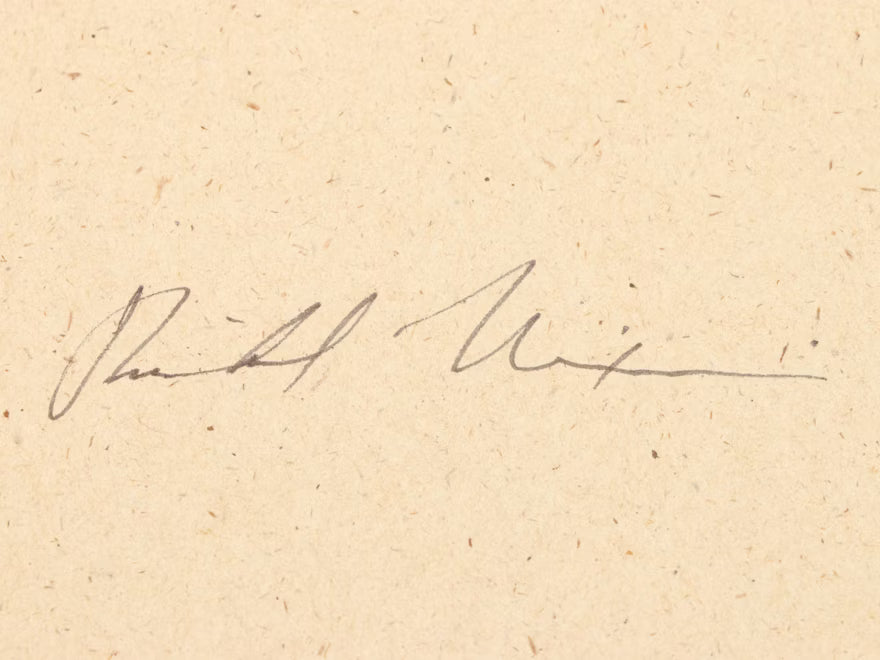 Richard Nixon